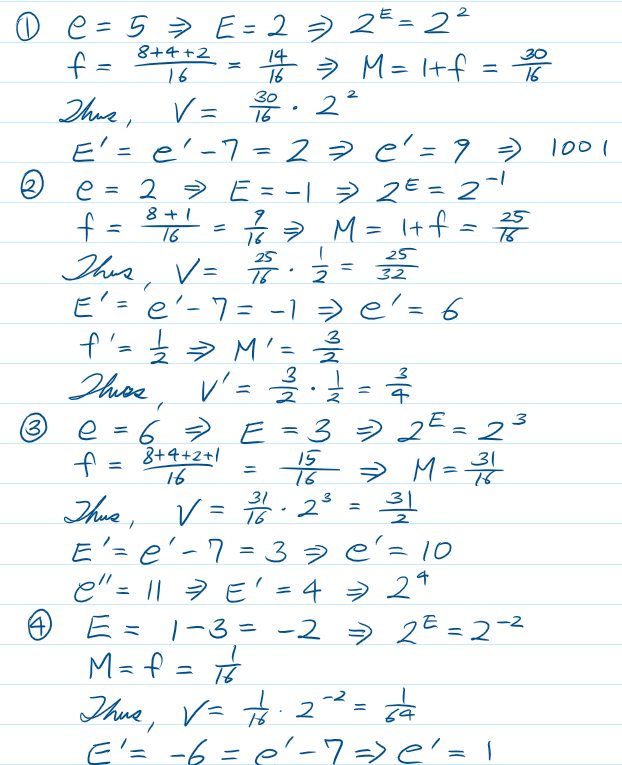 ① e = 5 ⇒ E = 2 ⇒ 2^E = 2^2
f = (8+4+2)/16 = 14/16 ⇒ M = 1+f = 30/16
Thus, V = 30/16 · 2^2
E' = e' - 7 = 2 ⇒ e' = 9 ⇒ 1001
② e = 2 ⇒ E = -1 ⇒ 2^E = 2^-1
f = (8+1)/16 = 9/16 ⇒ M = 1+f = 25/16
Thus, V = 25/16 · 1/2 = 25/32
E' = e' - 7 = -1 ⇒ e' = 6
f' = 1/2 ⇒ M' = 3/2
Thus, V' = 3/2 · 1/2 = 3/4
③ e = 6 ⇒ E = 3 ⇒ 2^E = 2^3
f = (8+4+2+1)/16 = 15/16 ⇒ M = 31/16
Thus, V = 31/16 · 2^3 = 31/2
E' = e' - 7 = 3 ⇒ e' = 10
e'' = 11 ⇒ E' = 4 ⇒ 2^4
④ E = 1-3 = -2 ⇒ 2^E = 2^-2
M = f = 1/16
Thus, V = 1/16 · 2^-2 = 1/64
E' = -6 = e' - 7 ⇒ e' = 1